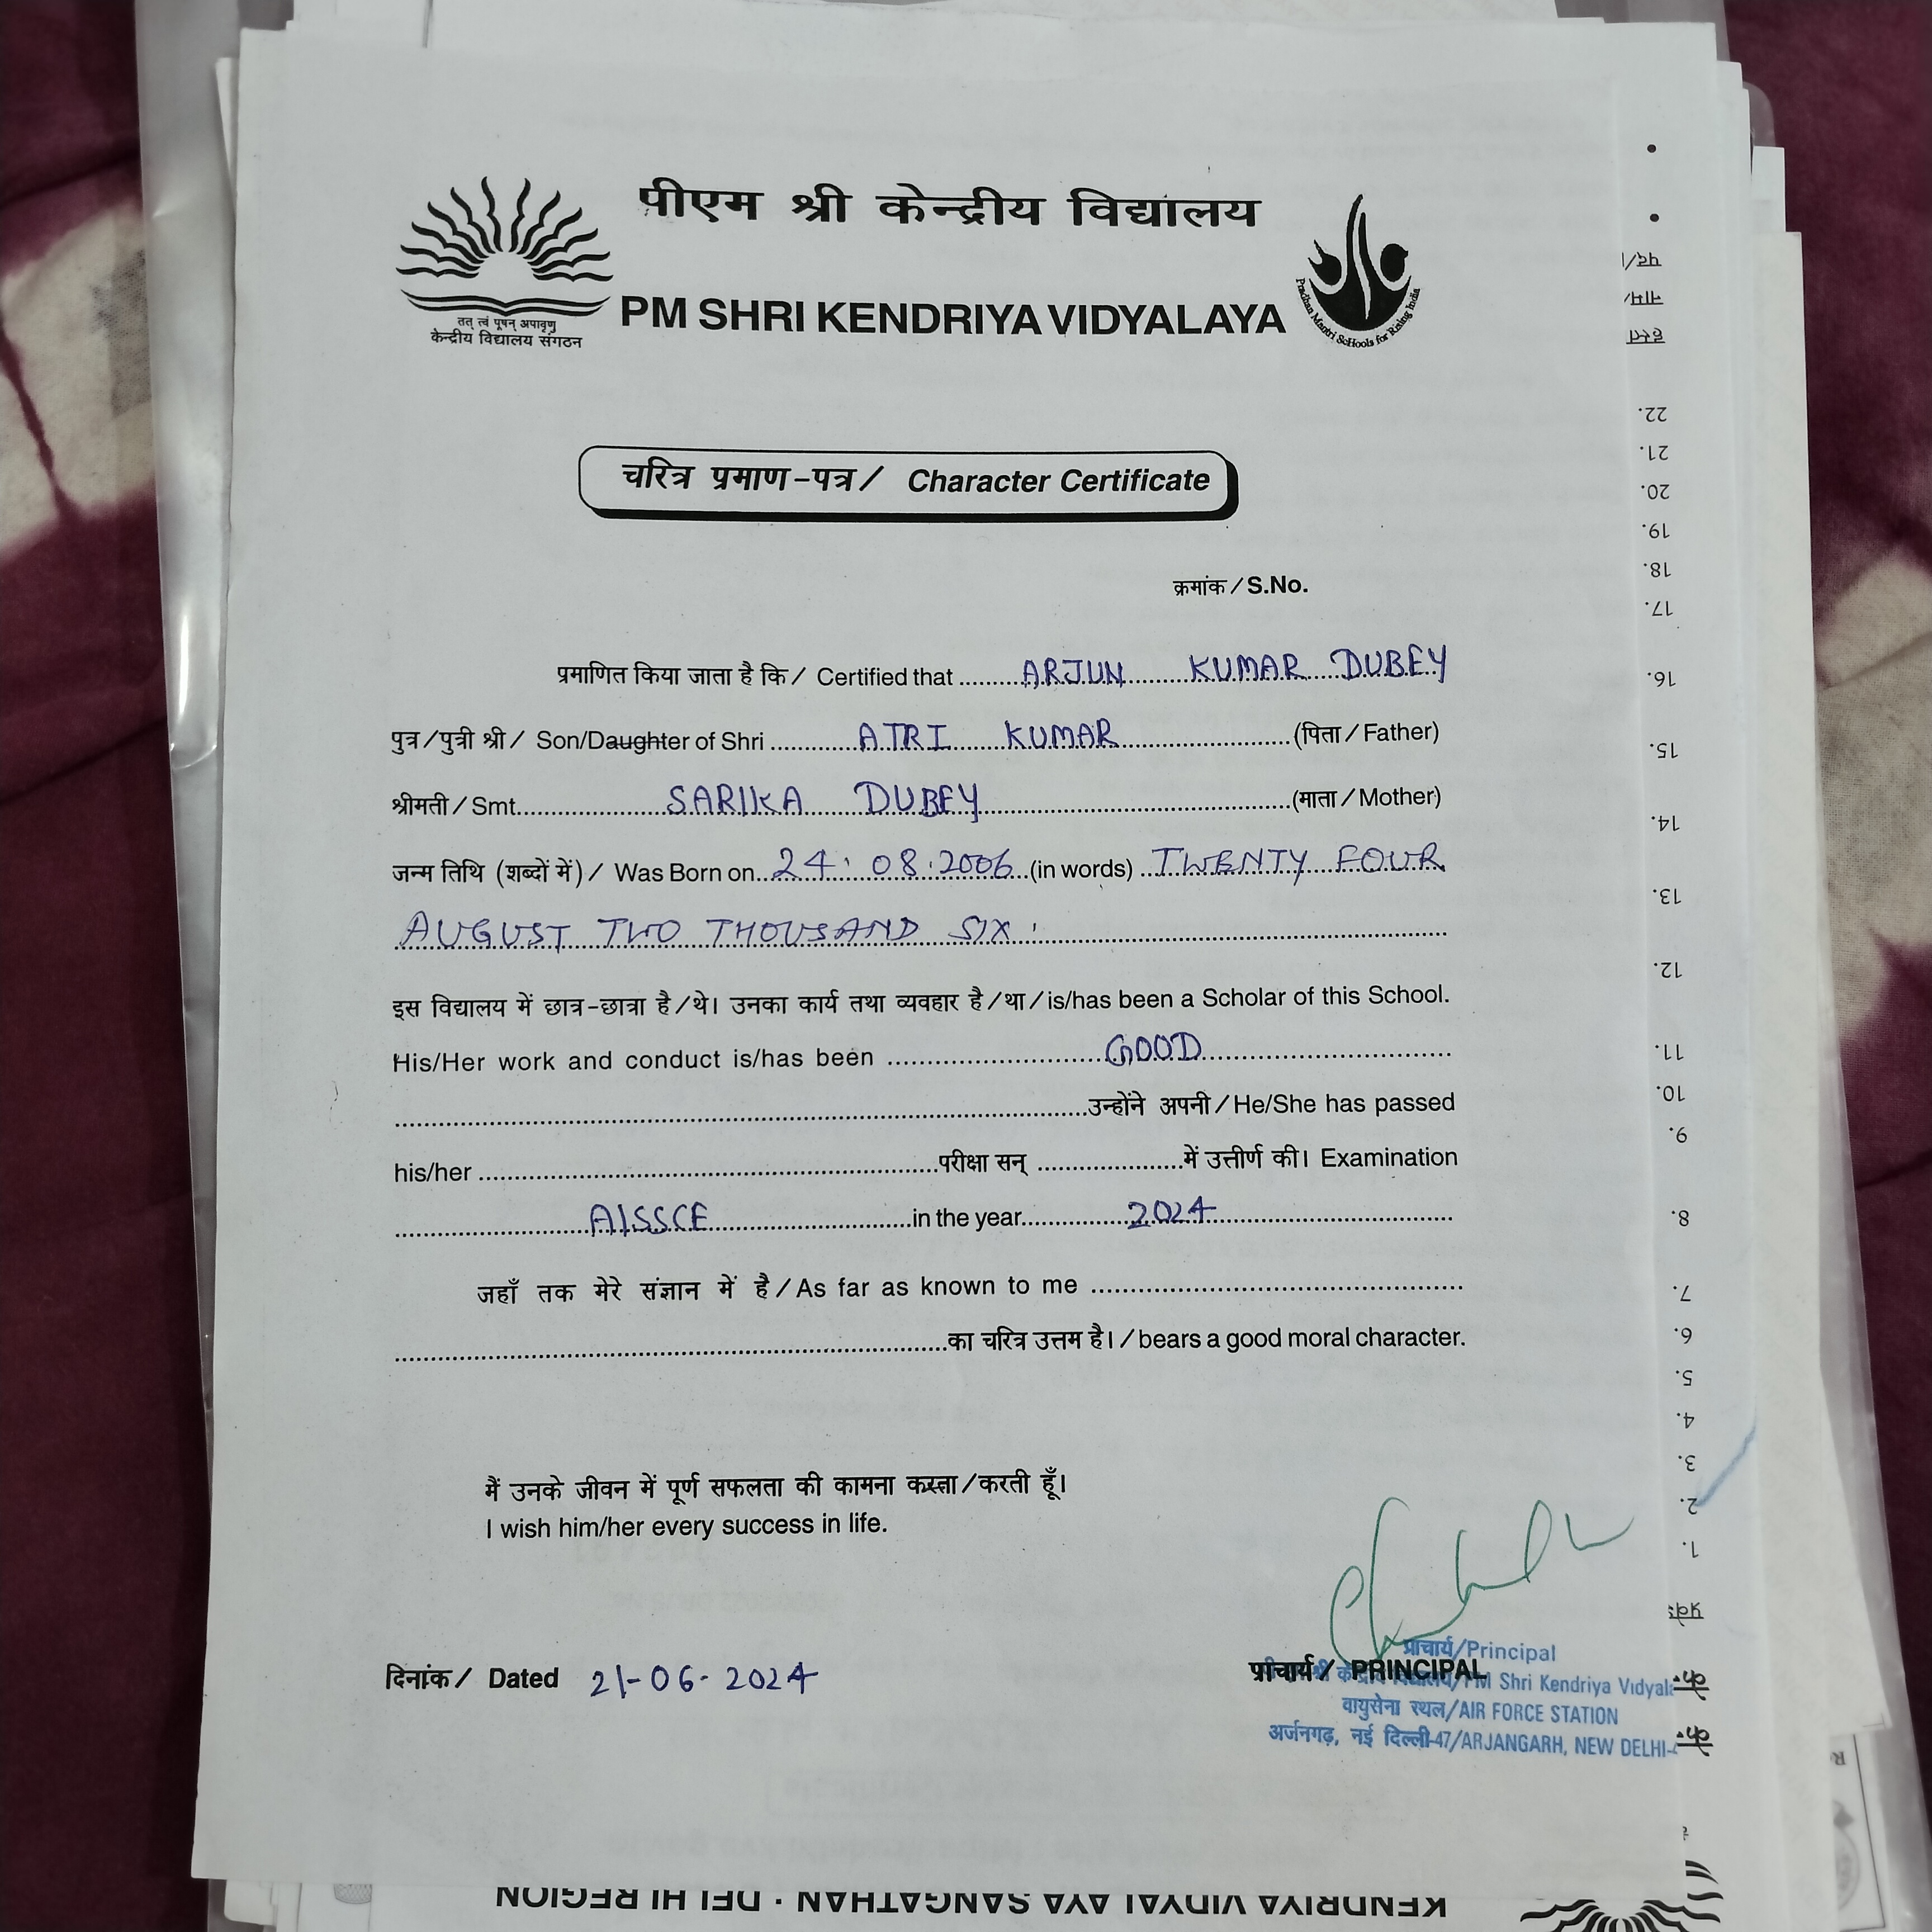 पीएम श्री केन्द्रीय विद्यालय
PM SHRI KENDRIYA VIDYALAYA
तत् त्वं पूषन् अपावृणु
केन्द्रीय विद्यालय संगठन
Pradhan Mantri ScHools for Rising India
चरित्र प्रमाण-पत्र / Character Certificate
क्रमांक / S.No.
प्रमाणित किया जाता है कि / Certified that ARJUN KUMAR DUBEY
पुत्र/पुत्री श्री / Son/Daughter of Shri ATRI KUMAR (पिता / Father)
श्रीमती / Smt. SARIKA DUBEY (माता / Mother)
जन्म तिथि (शब्दों में) / Was Born on 24.08.2006 (in words) TWENTY FOUR
AUGUST TWO THOUSAND SIX.
इस विद्यालय में छात्र-छात्रा है/थे। उनका कार्य तथा व्यवहार है/था/is/has been a Scholar of this School.
His/Her work and conduct is/has been GOOD
उन्होंने अपनी / He/She has passed
his/her परीक्षा सन् में उत्तीर्ण की। Examination
AISSCE in the year 2024
जहाँ तक मेरे संज्ञान में है / As far as known to me
का चरित्र उत्तम है। / bears a good moral character.
मैं उनके जीवन में पूर्ण सफलता की कामना करता/करती हूँ।
I wish him/her every success in life.
दिनांक / Dated 21-06-2024
प्राचार्य / PRINCIPAL
प्राचार्य/Principal
PM Shri Kendriya Vidyal
वायुसेना स्थल/AIR FORCE STATION
अर्जनगढ़, नई दिल्ली-47/ARJANGARH, NEW DELHI-
पद/
नाम/
हस्त
22.
21.
20.
19.
18.
17.
16.
15.
14.
13.
12.
11.
10.
9.
8.
7.
6.
5.
4.
3.
2.
1.
प्रवेश
के.
के.
KENDRIYA VIDYALAYA SANGATHAN - DELHI REGION